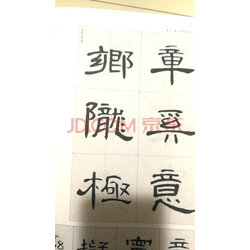 章意
鄉隴極
JD.COM 京东